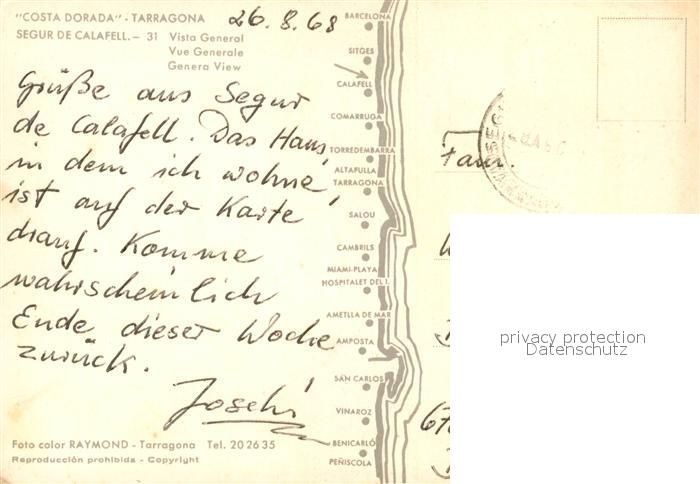 "COSTA DORADA" - TARRAGONA
SEGUR DE CALAFELL. - 31 Vista General
Vue Generale
Genera View
26.8.68
Grüße aus Segur
de Calafell. Das Haus,
in dem ich wohne,
ist auf der Karte
drauf. Komme
wahrscheinlich
Ende dieser Woche
zurück.
Joschi
Foto color RAYMOND - Tarragona Tel. 20 26 35
Reproducción prohibida - Copyright
BARCELONA
SITGES
CALAFELL
COMARRUGA
TORREDEMBARRA
ALTAFULLA
TARRAGONA
SALOU
CAMBRILS
MIAMI-PLAYA
HOSPITALET DEL I.
AMETLLA DE MAR
AMPOSTA
SAN CARLOS
VINAROZ
BENICARLÓ
PEÑISCOLA
Fam.
privacy protection
Datenschutz